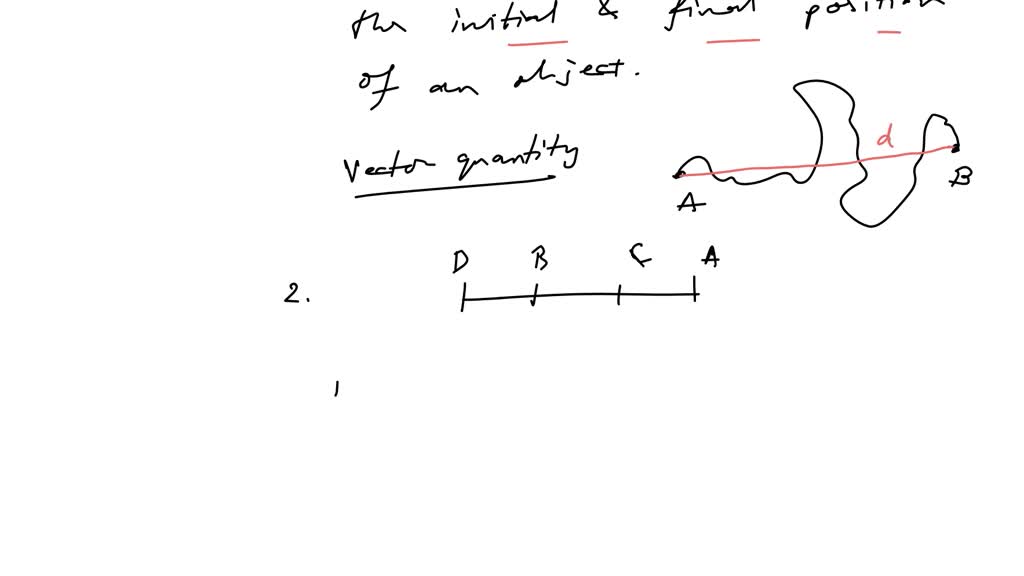 the initial & final position
of an object.
Vector quantity
d
A
B
D B C A
2.